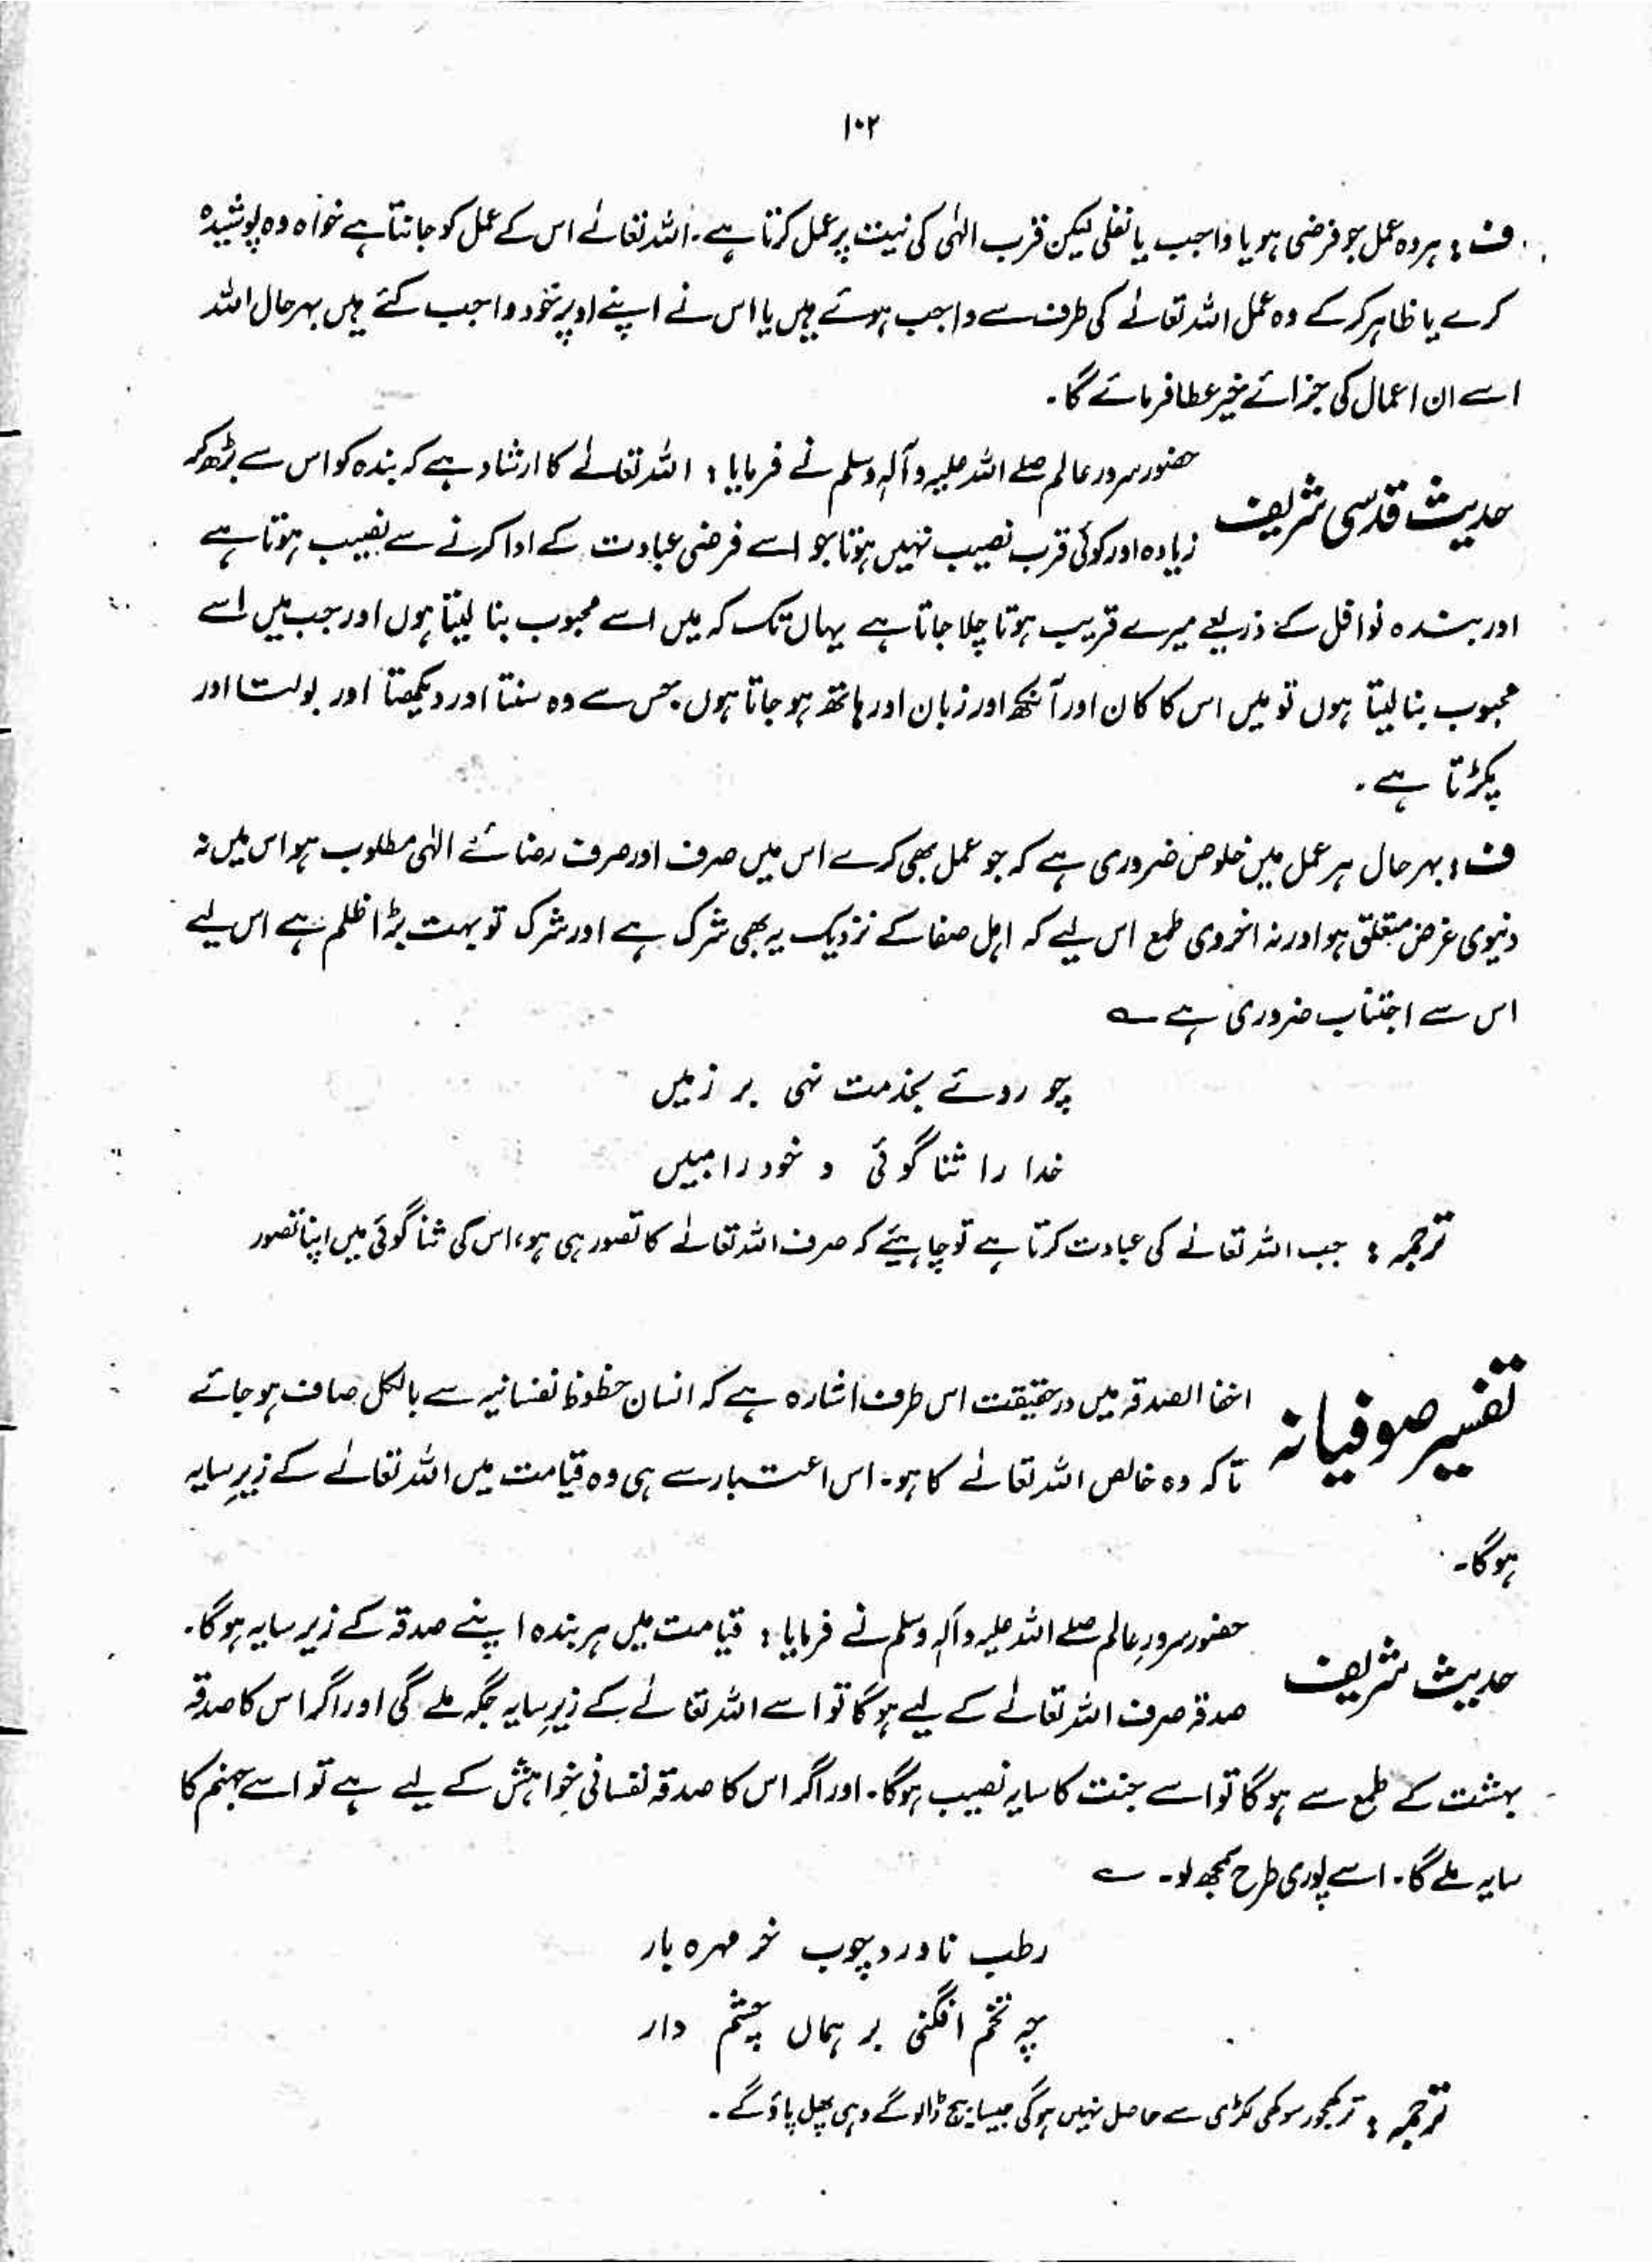 ۱۰۲
ف : ہر وہ عمل جو فرضی ہو یا واجب یا نفلی لیکن قرب الٰہی کی نیت پر عمل کرتا ہے۔ اللہ تعالےٰ اس کے عمل کو جانتا ہے خواہ وہ پوشیدہ
کرے یا ظاہر کر کے وہ عمل اللہ تعالےٰ کی طرف سے واجب ہوئے ہیں یا اس نے اپنے اوپر خود واجب کئے ہیں بہر حال اللہ
اسے ان اعمال کی جزائے خیر عطا فرمائے گا۔
حدیث قدسی شریف
حضور سرور عالم صلے اللہ علیہ وآلہٖ وسلم نے فرمایا : اللہ تعالےٰ کا ارشاد ہے کہ بندہ کو اس سے بڑھ کر
زیادہ اور کوئی قرب نصیب نہیں ہوتا جو اسے فرضی عبادت کے ادا کرنے سے نصیب ہوتا ہے
اور بندہ نوافل کے ذریعے میرے قریب ہوتا چلا جاتا ہے یہاں تک کہ میں اسے محبوب بنا لیتا ہوں اور جب میں اسے
محبوب بنا لیتا ہوں تو میں اس کا کان اور آنکھ اور زبان اور ہاتھ ہو جاتا ہوں جس سے وہ سنتا اور دیکھتا اور بولتا اور
پکڑتا ہے۔
ف : بہر حال ہر عمل میں خلوص ضروری ہے کہ جو عمل بھی کرے اس میں صرف اور صرف رضائے الٰہی مطلوب ہو اس میں نہ
دنیوی غرض متعلق ہو اور نہ اخروی طمع اس لیے کہ اہل صفا کے نزدیک یہ بھی شرک ہے اور شرک تو بہت بڑا ظلم ہے اس لیے
اس سے اجتناب ضروری ہے ؎
چو روئے بخدمت نہی بر زمیں
خدا را ثنا گوئی و خود را مبیں
ترجمہ : جب اللہ تعالےٰ کی عبادت کرتا ہے تو چاہیئے کہ صرف اللہ تعالےٰ کا تصور ہی ہو، اس کی ثنا گوئی میں اپنا تصور
تفسیر صوفیانہ
اخفا الصدقہ میں درحقیقت اس طرف اشارہ ہے کہ انسان حظوظ نفسانیہ سے بالکل صاف ہو جائے
تاکہ وہ خالص اللہ تعالےٰ کا ہو۔ اس اعتبار سے ہی وہ قیامت میں اللہ تعالےٰ کے زیرِ سایہ
ہوگا۔
حدیث شریف
حضور سرورِ عالم صلے اللہ علیہ وآلہٖ وسلم نے فرمایا : قیامت میں ہر بندہ اپنے صدقہ کے زیر سایہ ہوگا۔
صدقہ صرف اللہ تعالےٰ کے لیے ہوگا تو اسے اللہ تعالےٰ کے زیرِ سایہ جگہ ملے گی اور اگر اس کا صدقہ
بہشت کے طمع سے ہوگا تو اسے جنت کا سایہ نصیب ہوگا۔ اور اگر اس کا صدقہ نفسانی خواہش کے لیے ہے تو اسے جہنم کا
سایہ ملے گا۔ اسے پوری طرح سمجھ لو۔ ؎
رطب ناورد چوب خر مہرہ بار
چہ تخم افگنی بر ہماں چشم دار
ترجمہ : تر کھجور سوکھی لکڑی سے حاصل نہیں ہوگی جیسا بیج ڈالو گے وہی پھل پاؤ گے۔